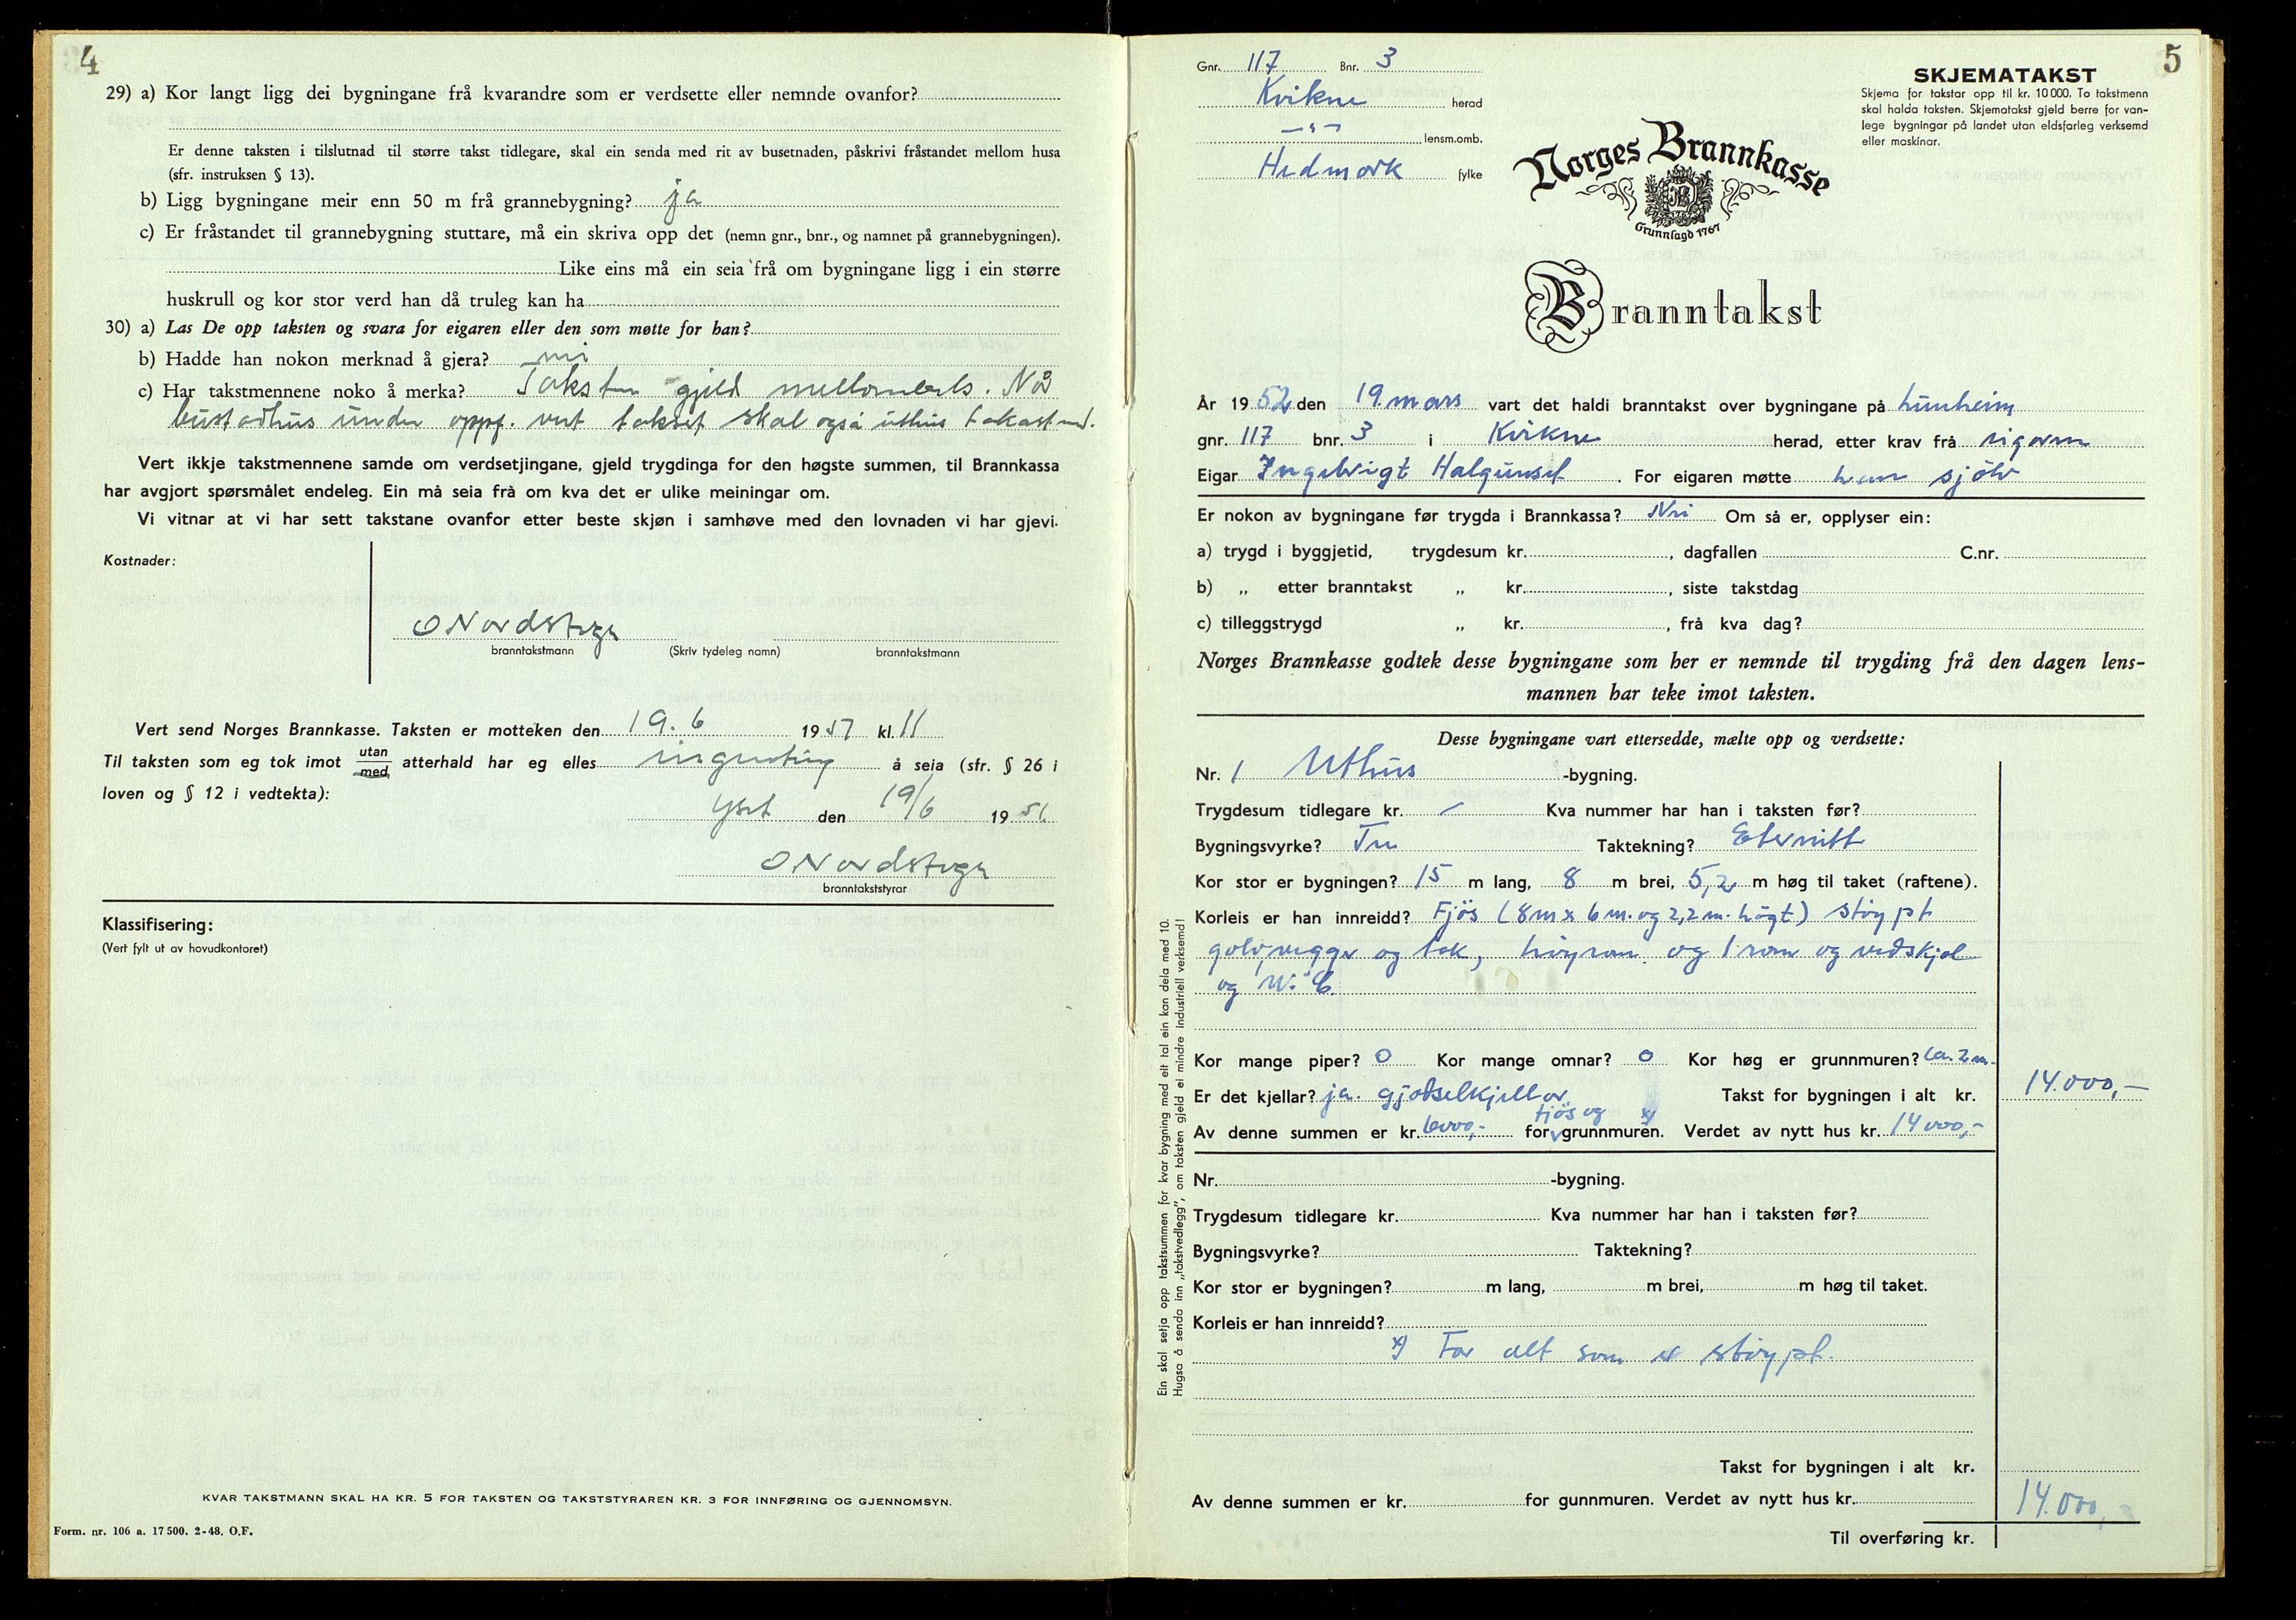 4
29) a) Kor langt ligg dei bygningane frå kvarandre som er verdsette eller nemnde ovanfor?
Er denne taksten i tilslutnad til større takst tidlegare, skal ein senda med rit av busetnaden, påskrivi fråstandet mellom husa
(sfr. instruksen § 13).
b) Ligg bygningane meir enn 50 m frå grannebygning? ja
c) Er fråstandet til grannebygning stuttare, må ein skriva opp det (nemn gnr., bnr., og namnet på grannebygningen).
Like eins må ein seia frå om bygningane ligg i ein større
huskrull og kor stor verd han då truleg kan ha
30) a) Las De opp taksten og svara for eigaren eller den som møtte for han?
b) Hadde han nokon merknad å gjera? nei
c) Har takstmennene noko å merka? Taksten gjeld mellombels. Når
bustadhus under oppf. vert takset skal også uthus takast med.
Vert ikkje takstmennene samde om verdsetjingane, gjeld trygdinga for den høgste summen, til Brannkassa
har avgjort spørsmålet endeleg. Ein må seia frå om kva det er ulike meiningar om.
Vi vitnar at vi har sett takstane ovanfor etter beste skjøn i samhøve med den lovnaden vi har gjevi.
Kostnader:
O Nordstoga
branntakstmann (Skriv tydeleg namn) branntakstmann
Vert send Norges Brannkasse. Taksten er motteken den 19.6 1951 kl. 11
Til taksten som eg tok imot utan/med atterhald har eg elles ingenting å seia (sfr. § 26 i
loven og § 12 i vedtekta):
Yset den 19/6 1951.
O Nordstoga
branntakststyrar
Klassifisering:
(Vert fylt ut av hovudkontoret)
KVAR TAKSTMANN SKAL HA KR. 5 FOR TAKSTEN OG TAKSTSTYRAREN KR. 3 FOR INNFØRING OG GJENNOMSYN.
Form. nr. 106 a. 17500. 2-48. O.F.
5
Gnr. 117 Bnr. 3
Kvikne herad
—"— lensm.omb.
Hedmark fylke
SKJEMATAKST
Skjema for takstar opp til kr. 10 000. To takstmenn
skal halda taksten. Skjematakst gjeld berre for van-
lege bygningar på landet utan eldsfarleg verksemd
eller maskinar.
Norges Brannkasse
Grunnlagd 1767
Branntakst
År 1952 den 19. mars vart det haldi branntakst over bygningane på
gnr. 117 bnr. 3 i Kvikne herad, etter krav frå eigaren
Eigar Ingebrigt Halgunset. For eigaren møtte han sjölv
Er nokon av bygningane før trygda i Brannkassa? Nei Om så er, opplyser ein:
a) trygd i byggjetid, trygdesum kr. , dagfallen C.nr.
b) „ etter branntakst „ kr. , siste takstdag
c) tilleggstrygd „ kr. , frå kva dag?
Norges Brannkasse godtek desse bygningane som her er nemnde til trygding frå den dagen lens-
mannen har teke imot taksten.
Desse bygningane vart ettersedde, mælte opp og verdsette:
Nr. 1 Uthus -bygning.
Trygdesum tidlegare kr. — Kva nummer har han i taksten før?
Bygningsvyrke? Tre Taktekning? Eternitt
Kor stor er bygningen? 15 m lang, 8 m brei, 5,2 m høg til taket (raftene).
Korleis er han innreidd? Fjös (8m x 6 m. og 2,2 m. högt) støypt
golv, vegger og tak, höyrom og 1 rom og vedskjol
og W.C.
Kor mange piper? 0 Kor mange omnar? 0 Kor høg er grunnmuren? ca. 2 m.
Er det kjellar? ja. gjødselkjellar Takst for bygningen i alt kr. 14.000,—
Av denne summen er kr. 6000,- for fjös og grunnmuren. x) Verdet av nytt hus kr. 14000,-
Nr. -bygning.
Trygdesum tidlegare kr. Kva nummer har han i taksten før?
Bygningsvyrke? Taktekning?
Kor stor er bygningen? m lang, m brei, m høg til taket.
Korleis er han innreidd?
x) For alt som er støypt.
Takst for bygningen i alt kr.
Av denne summen er kr. for gunnmuren. Verdet av nytt hus kr.
14.000,-
Til overføring kr.
Ein skal setja opp takstsummen for kvar bygning med eit tal ein kan dela med 10.
Hugsa å senda inn „takstvedlegg", om taksten gjeld ei mindre industriell verksemd!